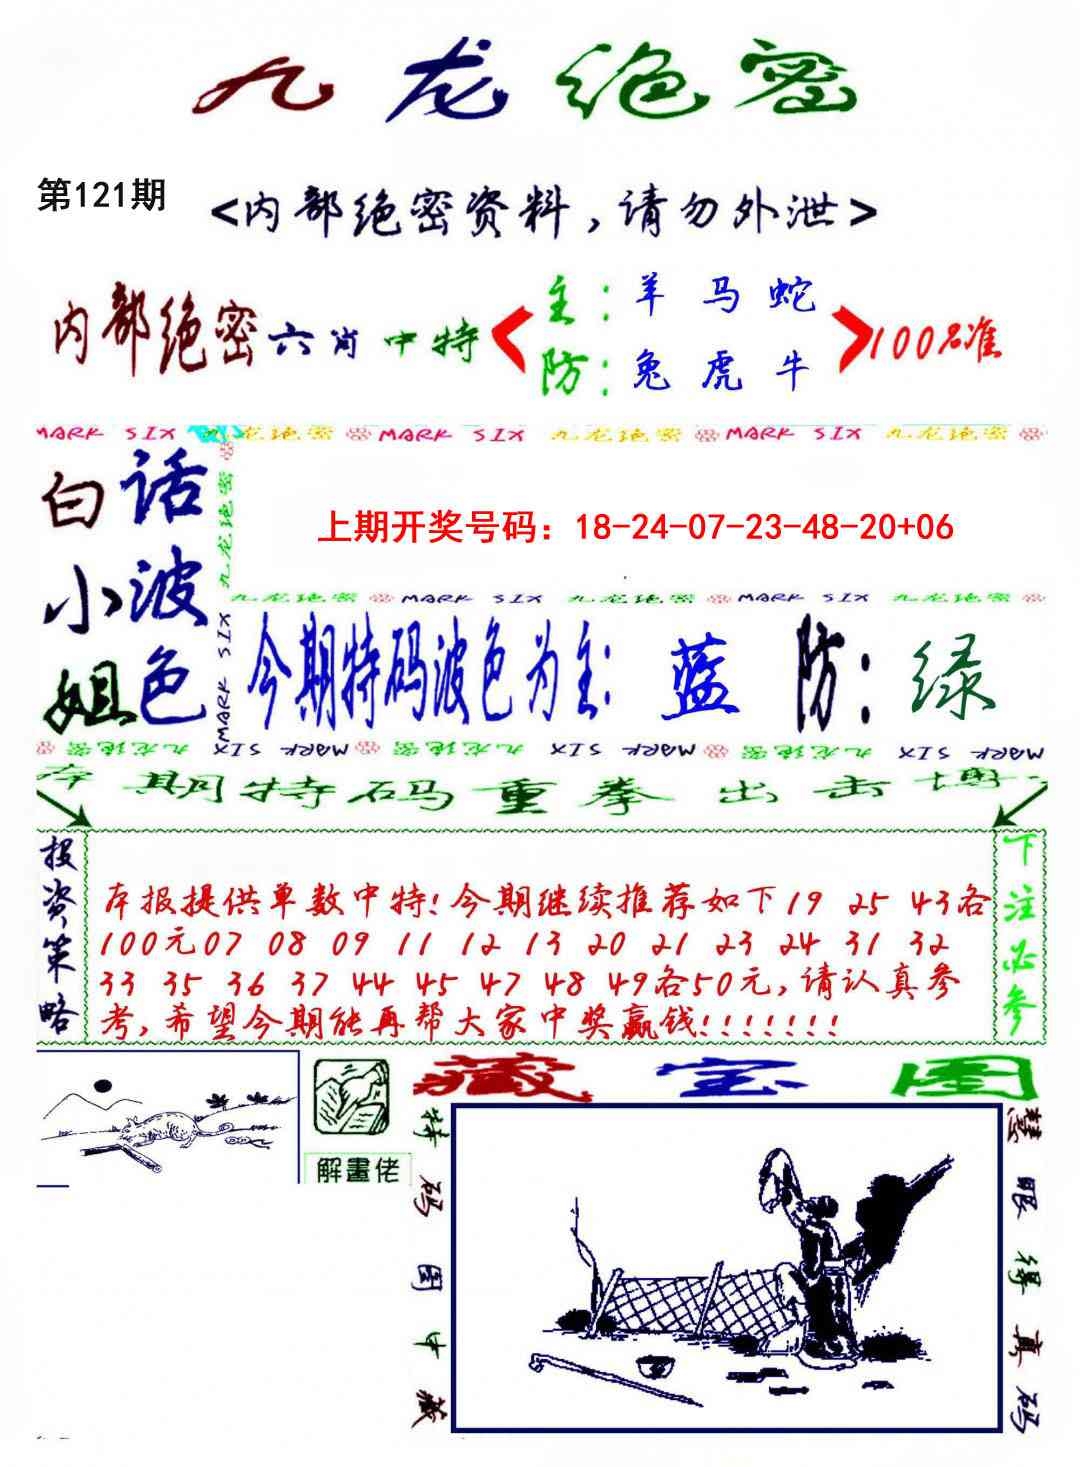 九龙绝密
第121期
<内部绝密资料,请勿外泄>
内部绝密六肖中特
主:羊 马 蛇
防:兔 虎 牛
100%准
MARK SIX 九龙绝密 MARK SIX 九龙绝密 MARK SIX 九龙绝密
白小姐
话波色
九龙绝密
MARK SIX
上期开奖号码：18-24-07-23-48-20+06
九龙绝密 MARK SIX 九龙绝密 MARK SIX 九龙绝密
今期特码波色为主: 蓝 防: 绿
九龙绝密 MARK SIX 九龙绝密 MARK SIX 九龙绝密 MARK SIX
本期特码重拳出击博
投资策略
本报提供单数中特!今期继续推荐如下19 25 43各
100元07 08 09 11 12 13 20 21 23 24 31 32
33 35 36 37 44 45 47 48 49各50元,请认真参
考,希望今期能再帮大家中奖赢钱!!!!!!!
下注必参
解畫佬
藏宝图
特码图中藏
慧眼得真码